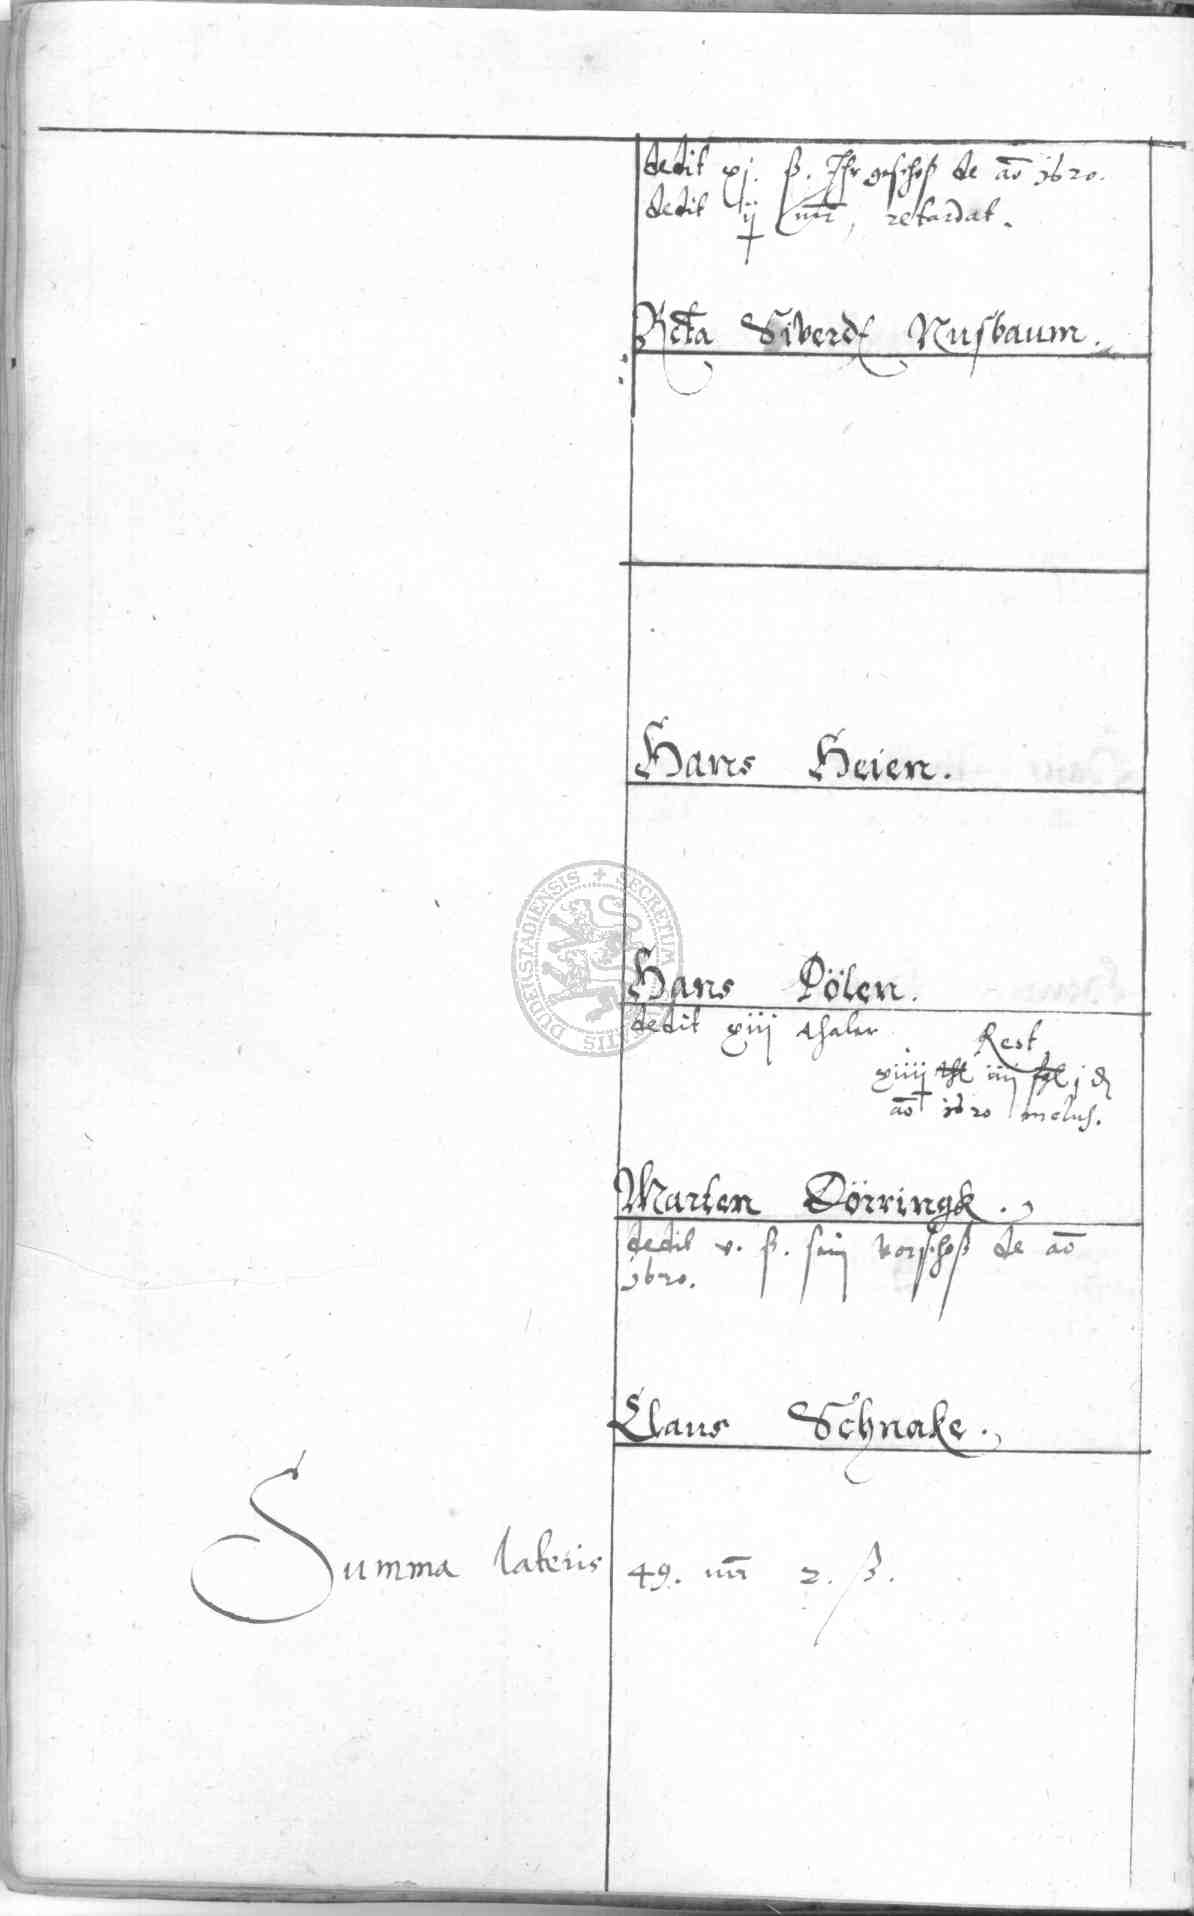 dedit xj. ß. Ihr geschoß de ao 1620.
dedit ij mr, retardat.
Relicta Siverdt Nusbaum.
Hans Heien.
Hans Pölen.
dedit xiij thaler
Rest
xiiij thl iiij j d
ao 1620 inclus.
Marten Dörringk.
dedit v. ß. sein vorschoß de ao
1620.
Claus Schnake.
Summa lateris 49. mr 2. ß.
DUDERSTADIENSIS + SECRETUM